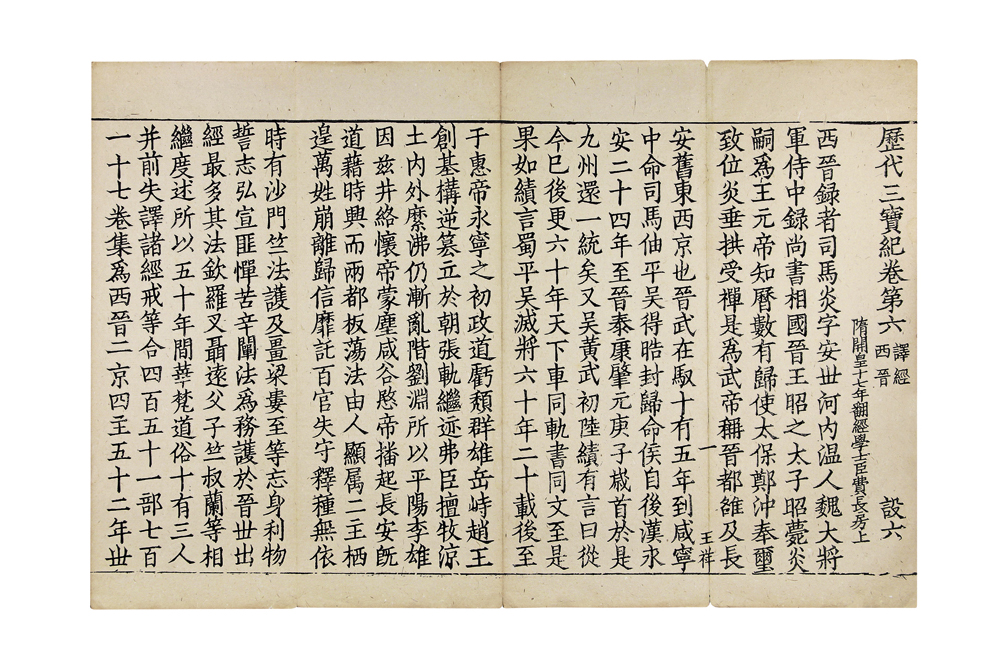 歷代三寶紀卷第六 譯經 西晉 設六
隋開皇十七年翻經學士臣費長房上
西晉録者司馬炎字安丗河内温人魏大將
軍侍中録尚書相國晉王昭之太子昭薨炎
嗣爲王元帝知曆數有歸使太保鄭沖奉璽
致位炎垂拱受禪是爲武帝稱晉都雒及長
一 王祥
安舊東西京也晉武在馭十有五年到咸寧
中命司馬伷平吴得晧封歸命侯自後漢永
安二十四年至晉泰康肇元庚子嵗首於是
九州還一統矣又吴黃武初陸績有言曰從
今已後更六十年天下車同軌書同文至是
果如績言蜀平吴滅將六十年二十載後至
于惠帝永寧之初政道虧頽群雄岳峙趙王
創基構逆篡立於朝張軌繼迹弗臣擅牧涼
土内外縻沸仍漸亂階劉淵所以平陽李雄
因兹井絡懷帝蒙塵咸谷愍帝播起長安旣
道藉時興而兩都板蕩法由人顯属二主栖
遑萬姓崩離歸信靡託百官失守釋種無依
時有沙門竺法護及畺梁婁至等忘身利物
誓志弘宣匪憚苦辛闡法爲務護於晉丗出
經最多其法欽羅叉聶逺父子竺叔蘭等相
繼度述所以五十年間華梵道俗十有三人
并前失譯諸經戒等合四百五十一部七百
一十七卷集爲西晉二京四主五十二年丗